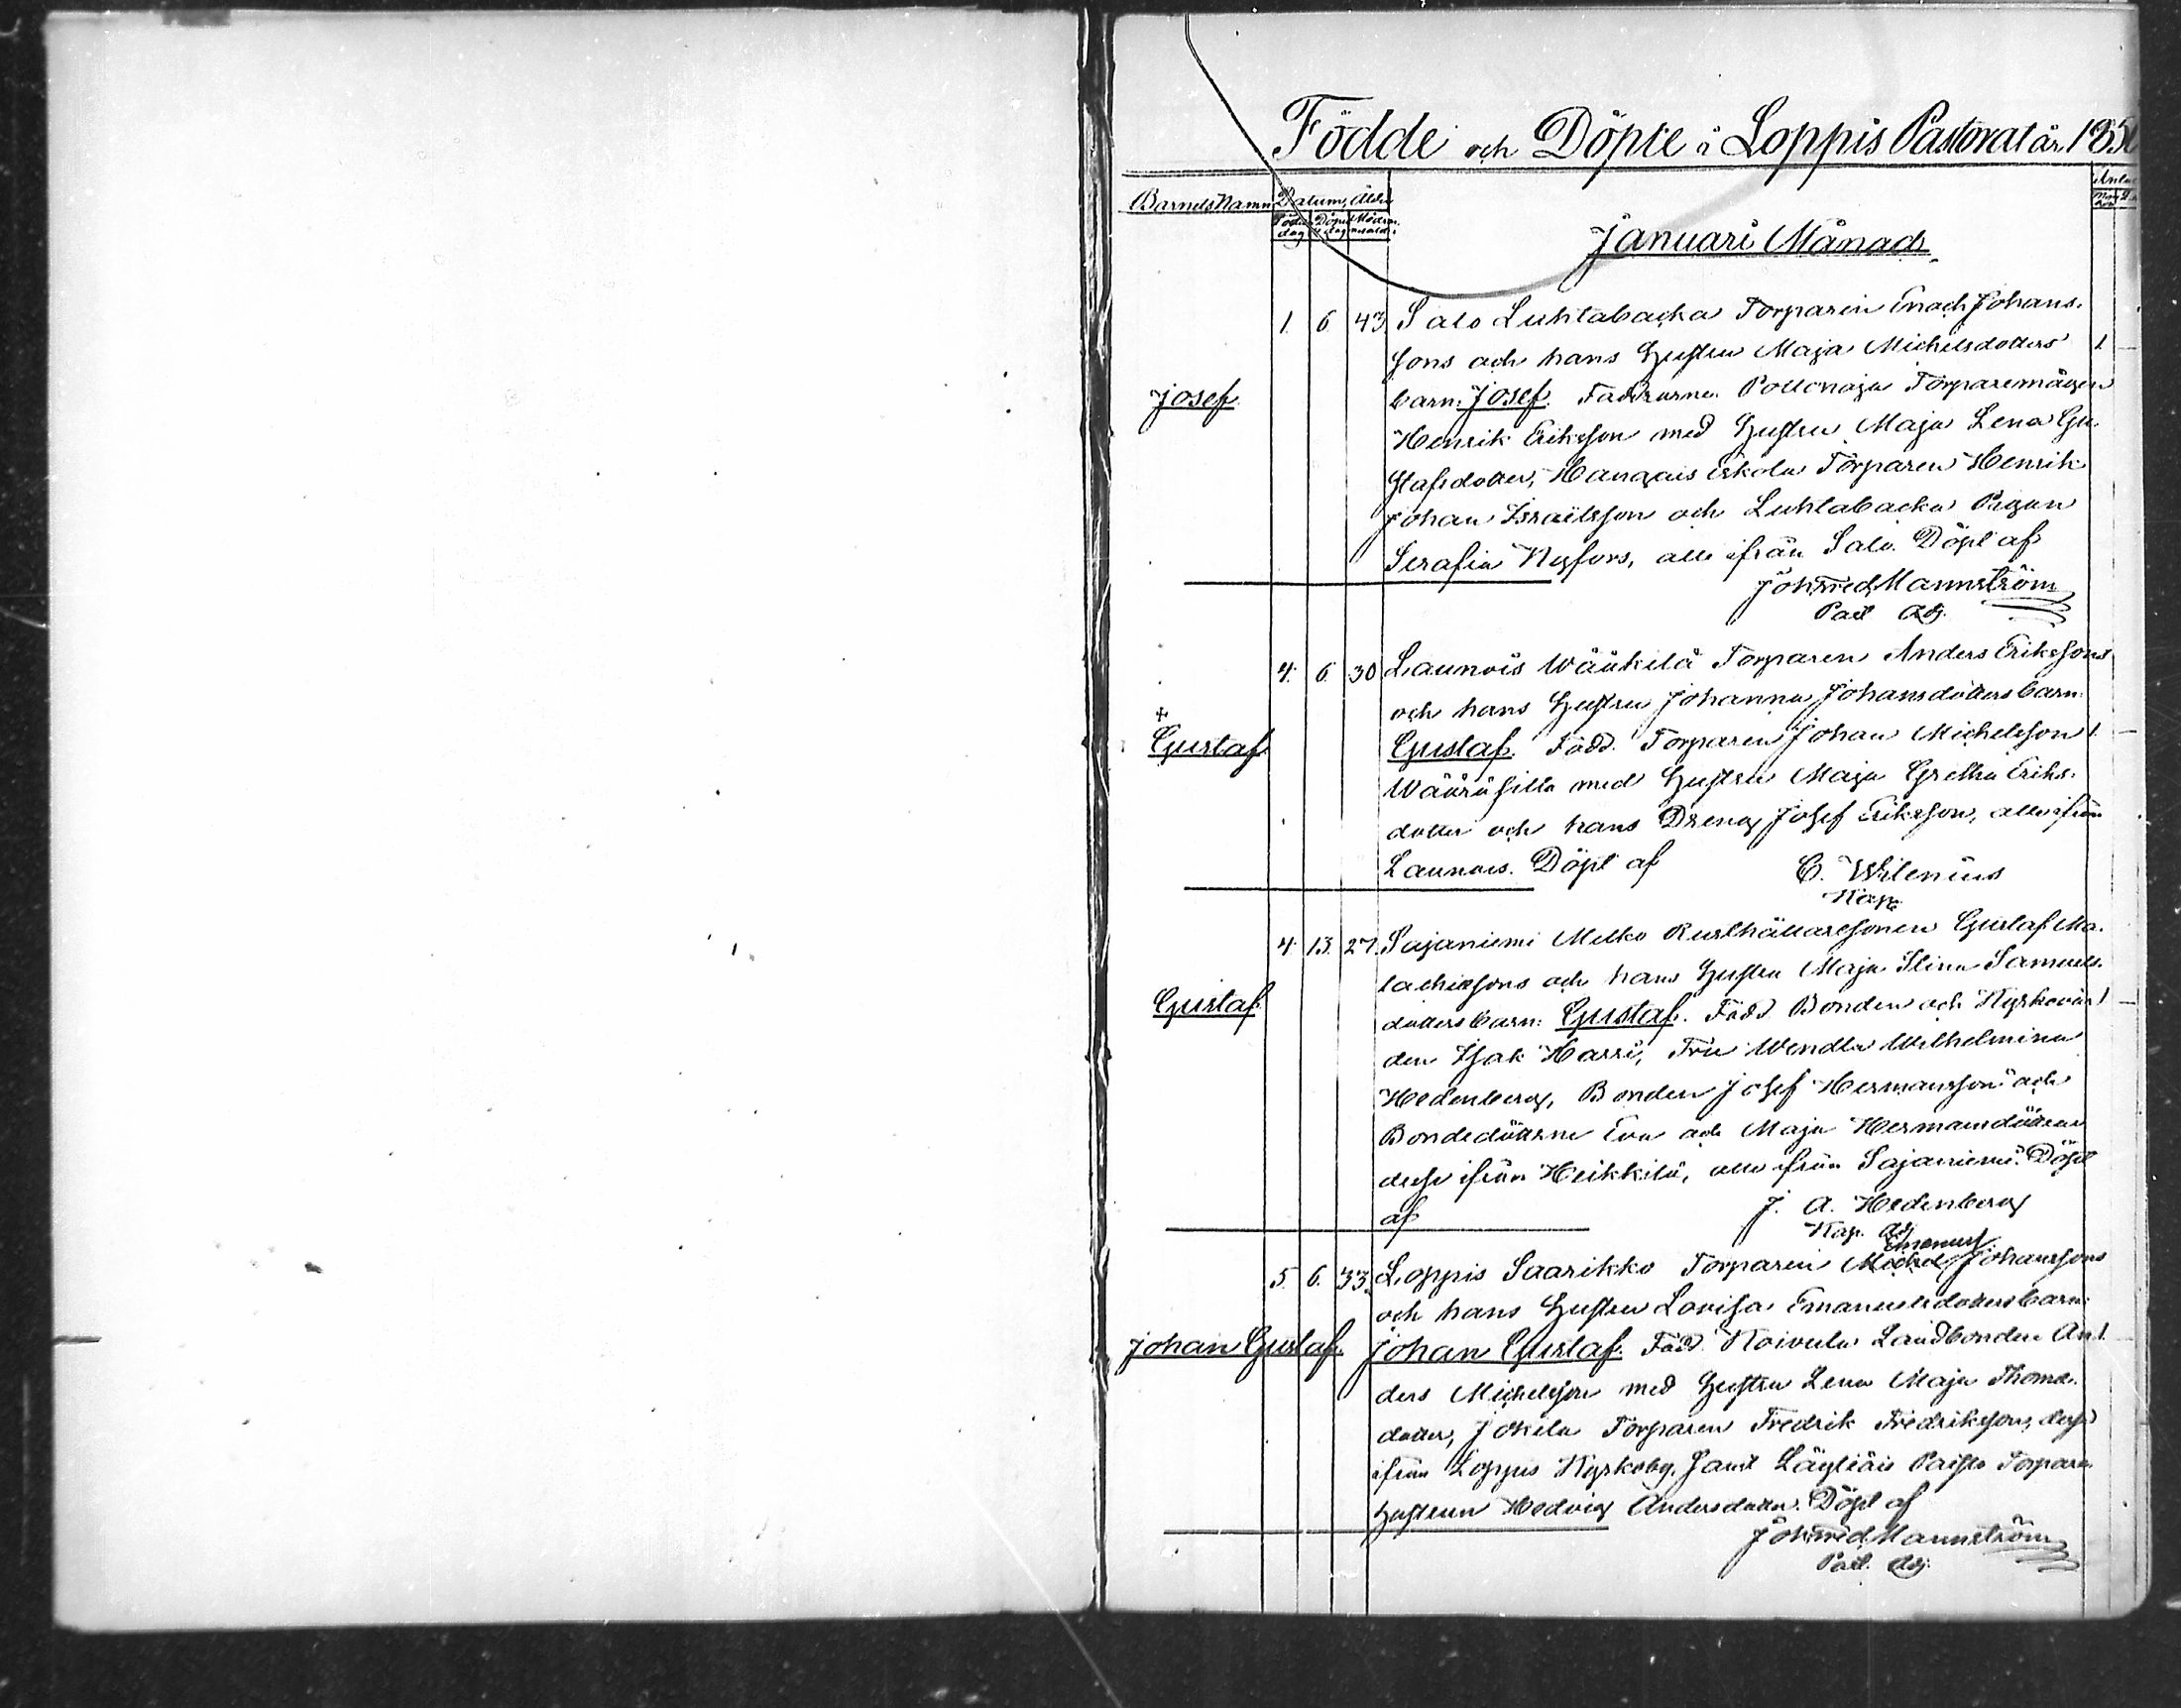 Födde och Döpte i Loppis Pastorat år 1850
Barnets Namn Datum, Ålder
Födelse dag Döpelse dag Modrens ålder
Januari Månad
1. 6 43 Salo Luhtabacka Torparen Enoch Johans-
sons och hans Hustru Maja Michelsdotters 1
Josef. barn: Josef. Faddrarne: Torparemågen
Henrik Eriksson med Hustru Maja Lena Gu-
stafsdotter, Eskola Torparen Henrik
Johan Israelsson och Luhtabacka Pigan
Serafia Nyfors, alla ifrån Salo. Döpt af
Joh. Fred. Mannström
Past. Adj.
4. 6. 30 Launois Wäükilä Torparen Anders Erikssons
och hans Hustru Johanna Johansdotters barn:
+
Gustaf Gustaf. Fadd. Torparen Johan Michelsson 1.
med Hustru Maja Gretha Eriks-
dotter och hans Dreng Josef Eriksson, alla ifrån
Launois. Döpt af C. Wilenius
Kap.
4. 13. 27. Sajaniemi Melko Rusthållaresonen Gustaf Ma-
lachiassons och hans Hustru Maja Stina Samuels-
Gustaf. dotters barn: Gustaf. Fadd. Bonden och Kyrkovär- 1
den Isak Harri, Fru Wendla Wilhelmina
Hedenberg, Bonden Josef Hermansson och
Bondedöttrne Eva och Maja Hermansdöttrar
desse ifrån Heikkilä, alla ifrån Sajaniemi. Döpt
af J. A. Hedenberg
Kap. Adj.
Emanuel
5. 6. 33. Loppis Saarikko Torparen Michel Johanssons
och hans Hustru Lovisa Emanuelsdotters barn:
Johan Gustaf. Johan Gustaf. Fadd. Koivula Landbonden An- 1.
ders Michelsson med Hustru Lena Maja Thomas-
dotter, Jokela Torparen Fredrik Fredriksson, desse
ifrån Loppis Kyrkoby, samt Läyliäis Torpare
hustrun Hedvig Andersdotter. Döpt af
Joh. Fred. Mannström
Past. Adj.